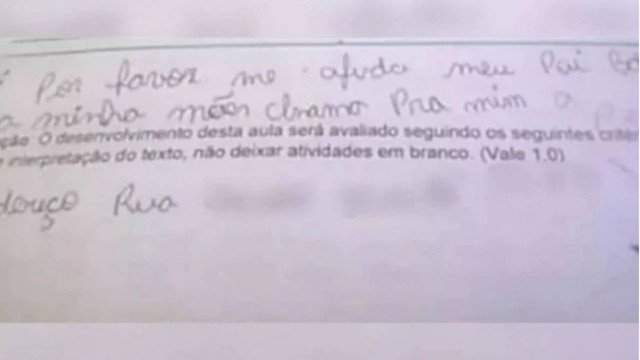 Por favor me ajuda meu Pai
a minha mãe chamo Pra mim a
ção O desenvolvimento desta aula será avaliado seguindo os seguintes criter
interpretação do texto, não deixar atividades em branco. (Vale 1.0)
Rua